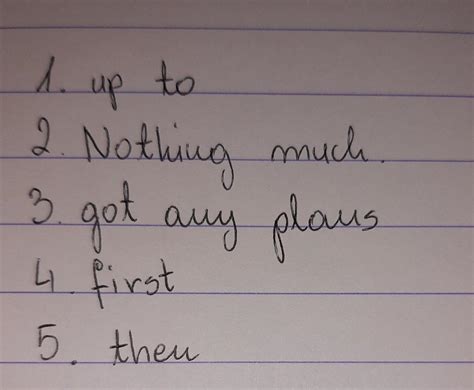 1. up to
2. Nothing much.
3. got any plans
4. first
5. then